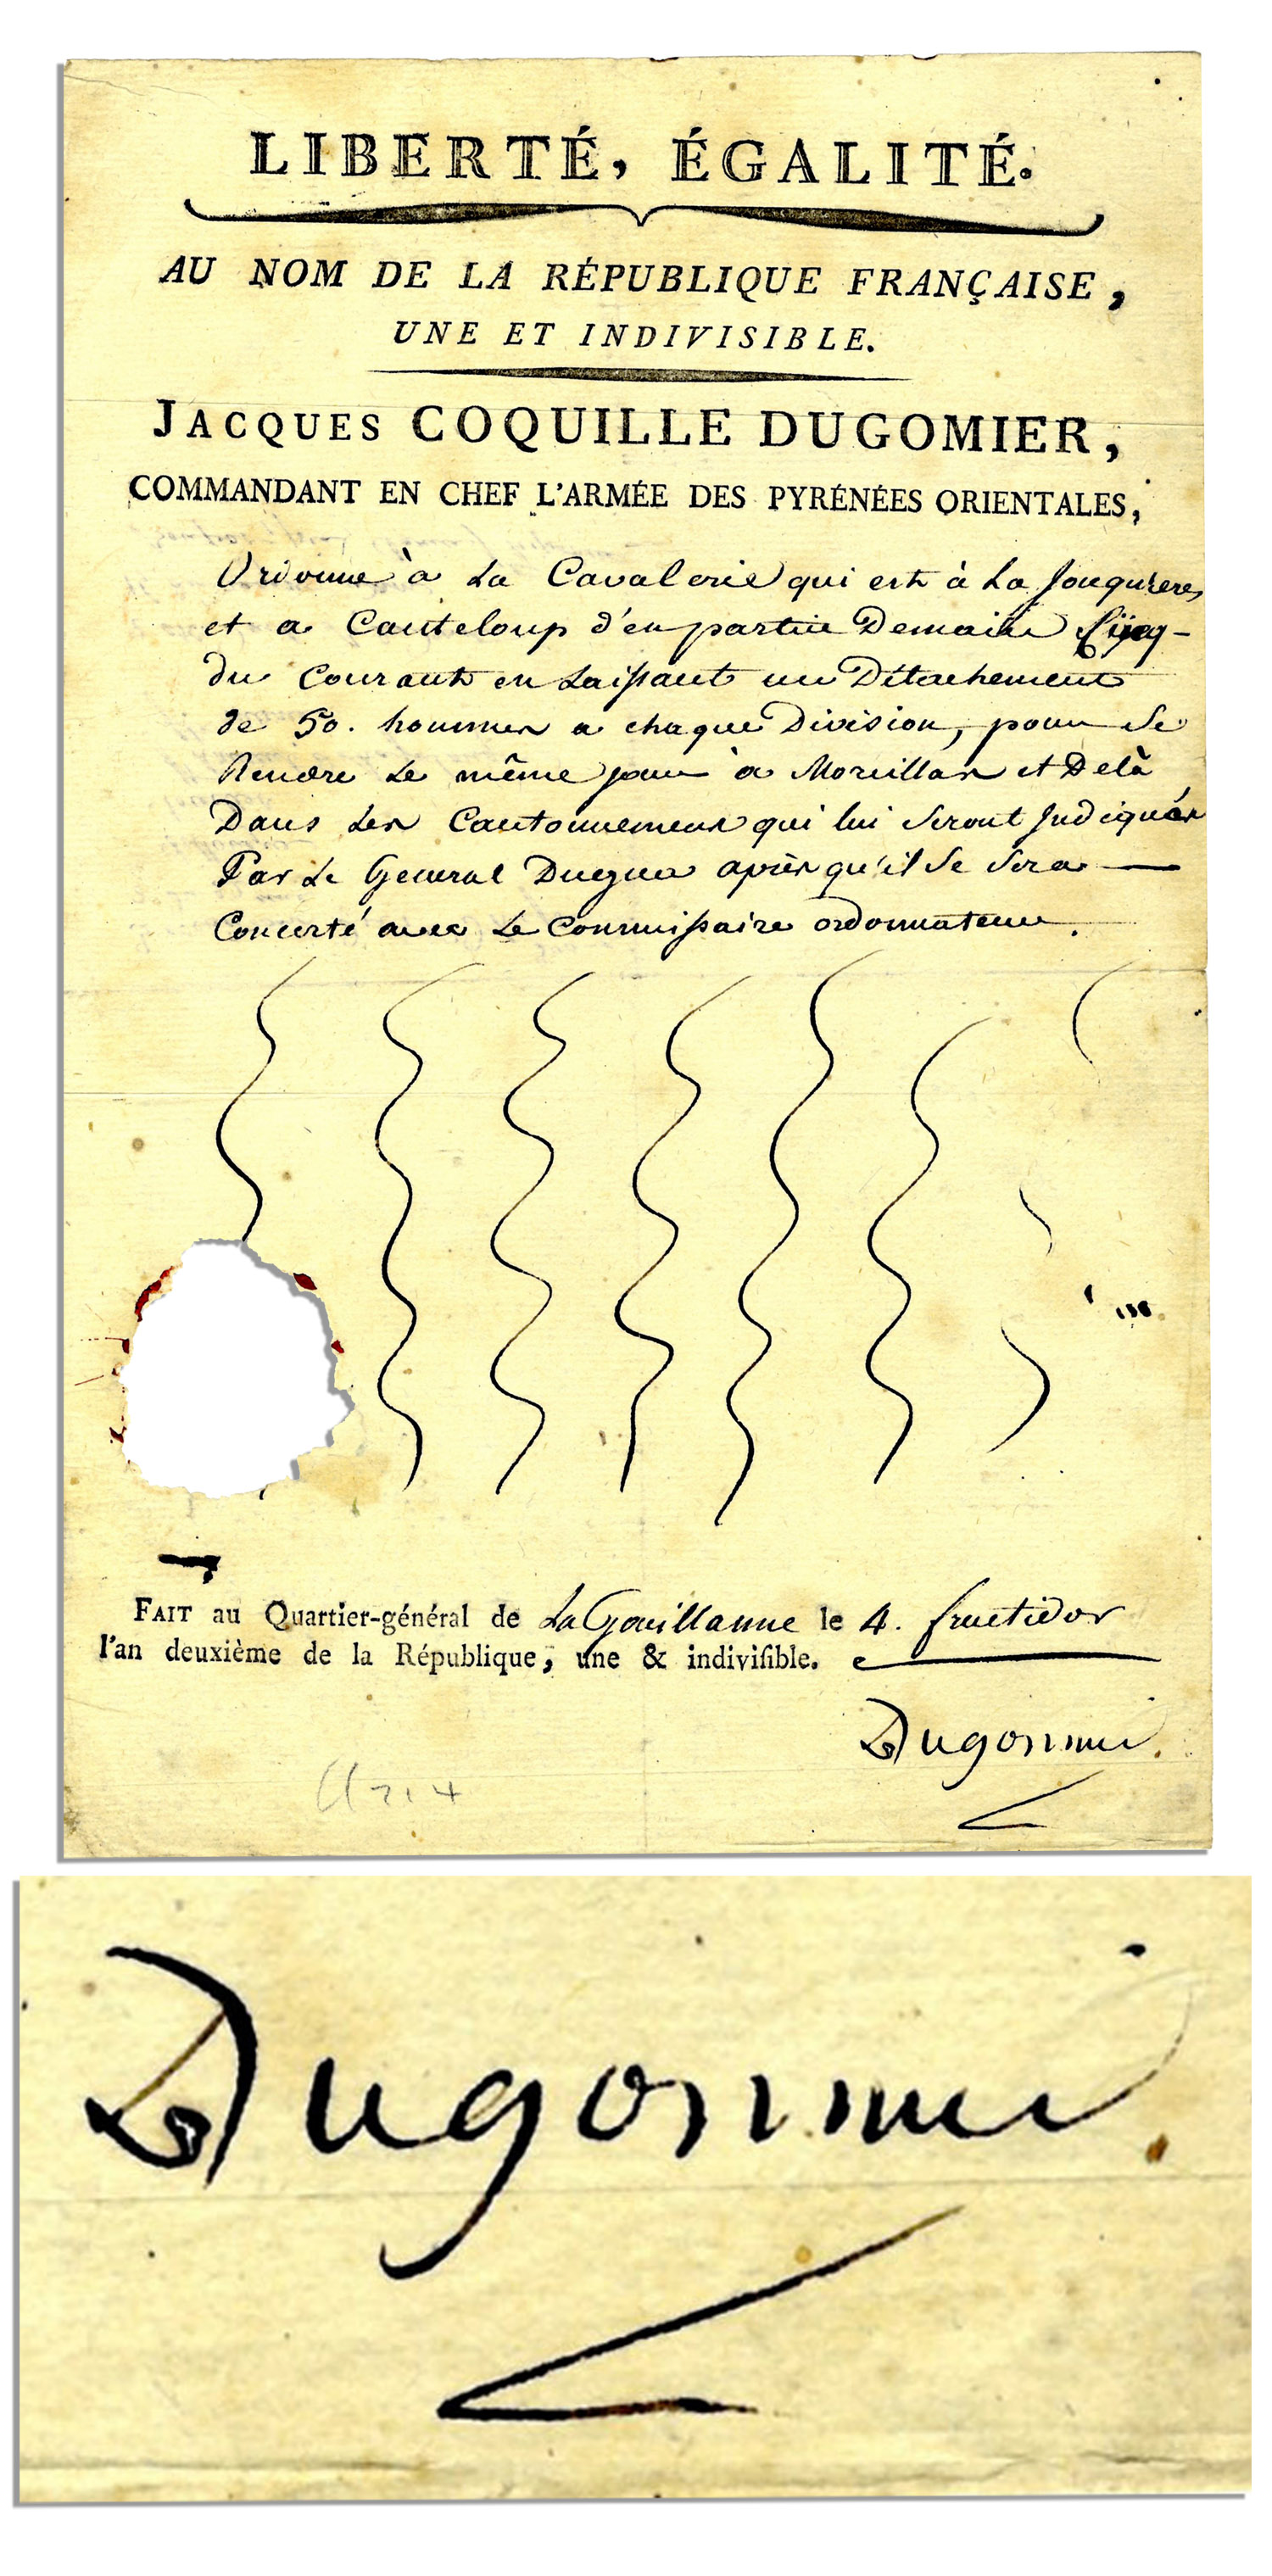 LIBERTÉ, ÉGALITÉ.
AU NOM DE LA RÉPUBLIQUE FRANÇAISE,
UNE ET INDIVISIBLE.
JACQUES COQUILLE DUGOMIER,
COMMANDANT EN CHEF L'ARMÉE DES PYRÉNÉES ORIENTALES,
Ordonne à La Cavalerie qui est à La Jonquieres
et a Canteloup d'en partir Demain Cinq
du Courant en Laissant un Détachement
de 50. hommes a chaque Division, pour Se
Rendre Le même jour à Moreillas et Delà
Dans Les Cantonnemens qui lui Seront Indiqués
Par Le General Dugua après qu'il Se Sera
Concerté avec Le Commissaire ordonnateur.
FAIT au Quartier-général de La Gouillanne le 4. fructidor
l'an deuxième de la République, une & indivisible.
Dugommier
Dugommier